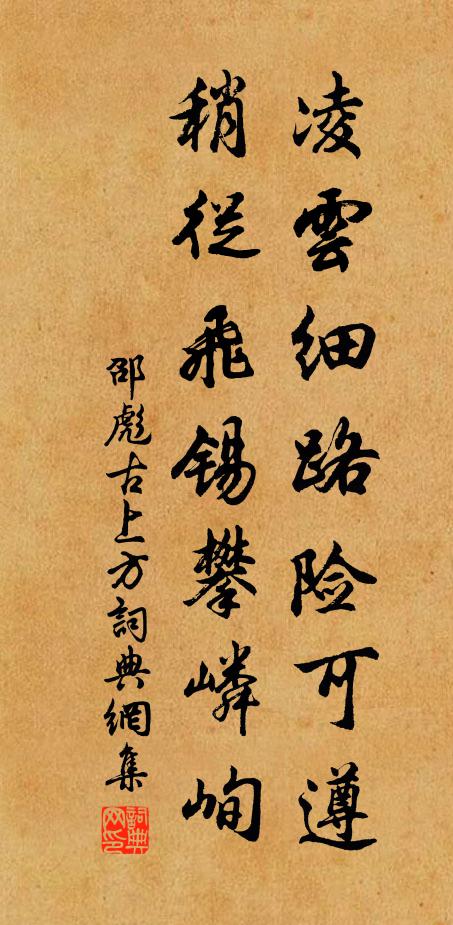 凌雲細路险可遵
稍從飛锡攀嶙峋
邵彪古上方詞典網集
詞典網印